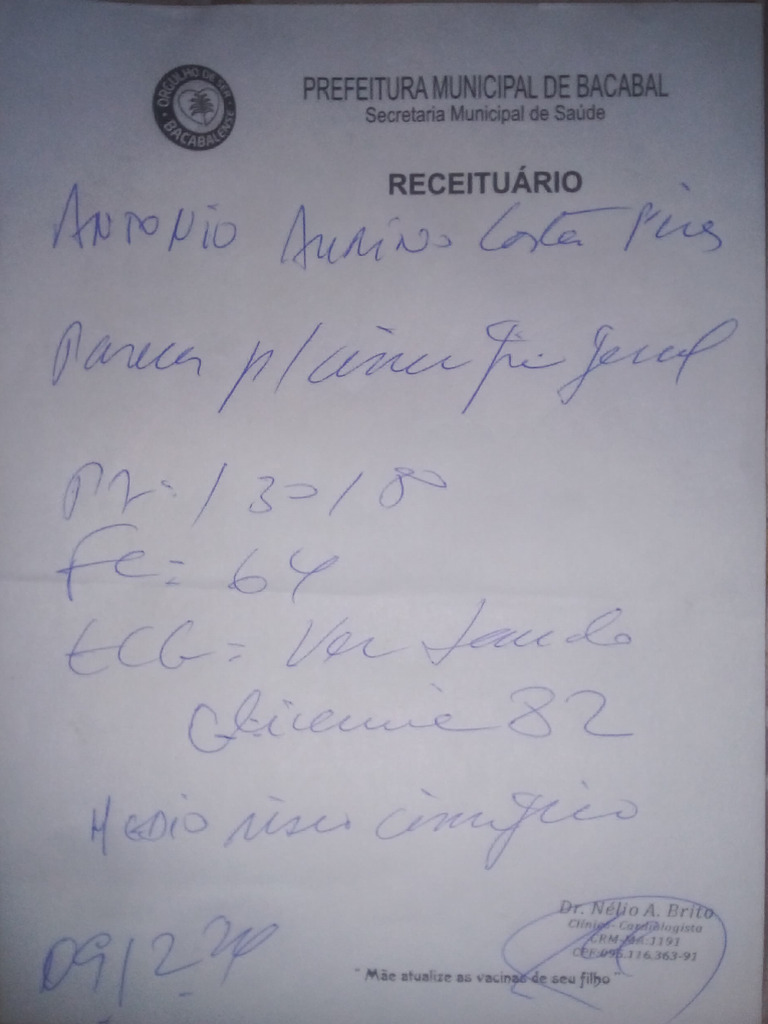 ORGULHO DE SER
BACABALENSE
PREFEITURA MUNICIPAL DE BACABAL
Secretaria Municipal de Saúde
RECEITUÁRIO
ANTONIO Aurino Costa Pires
Parecer p/ cirurgia geral
PA = 130/80
FC = 64
ECG = Ver laudo
Glicemia 82
MEDIO risco cirurgico
Dr. Nélio A. Brito
Clínico - Cardiologista
CRM-MA:1191
CPF:095.116.363-91
09/2
"Mãe atualize as vacinas de seu filho"